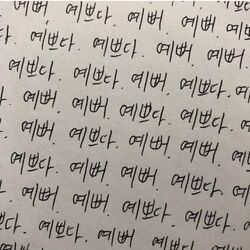 예뻐. 예쁘다. 예뻐.
예쁘다. 예뻐. 예쁘다.
예뻐. 예쁘다. 예뻐. 예쁘다.
예쁘다. 예뻐. 예쁘다. 예뻐.
예뻐. 예쁘다. 예뻐. 예쁘다.
예쁘다. 예뻐. 예쁘다. 예뻐.
예뻐. 예쁘다. 예뻐. 예쁘다.
예쁘다. 예뻐. 예쁘다. 예뻐.
예뻐. 예쁘다. 예뻐. 예쁘다.